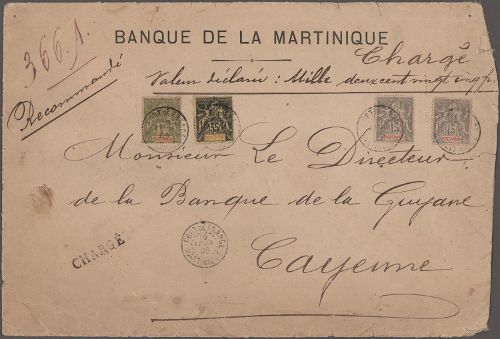 366.1.
BANQUE DE LA MARTINIQUE
Chargé
Recommandé
Valeur déclarée : Mille deux cent vingt
Monsieur Le Directeur
de la Banque de la Guyane
Cayenne
CHARGÉ
FORT DE FRANCE
MARTINIQUE